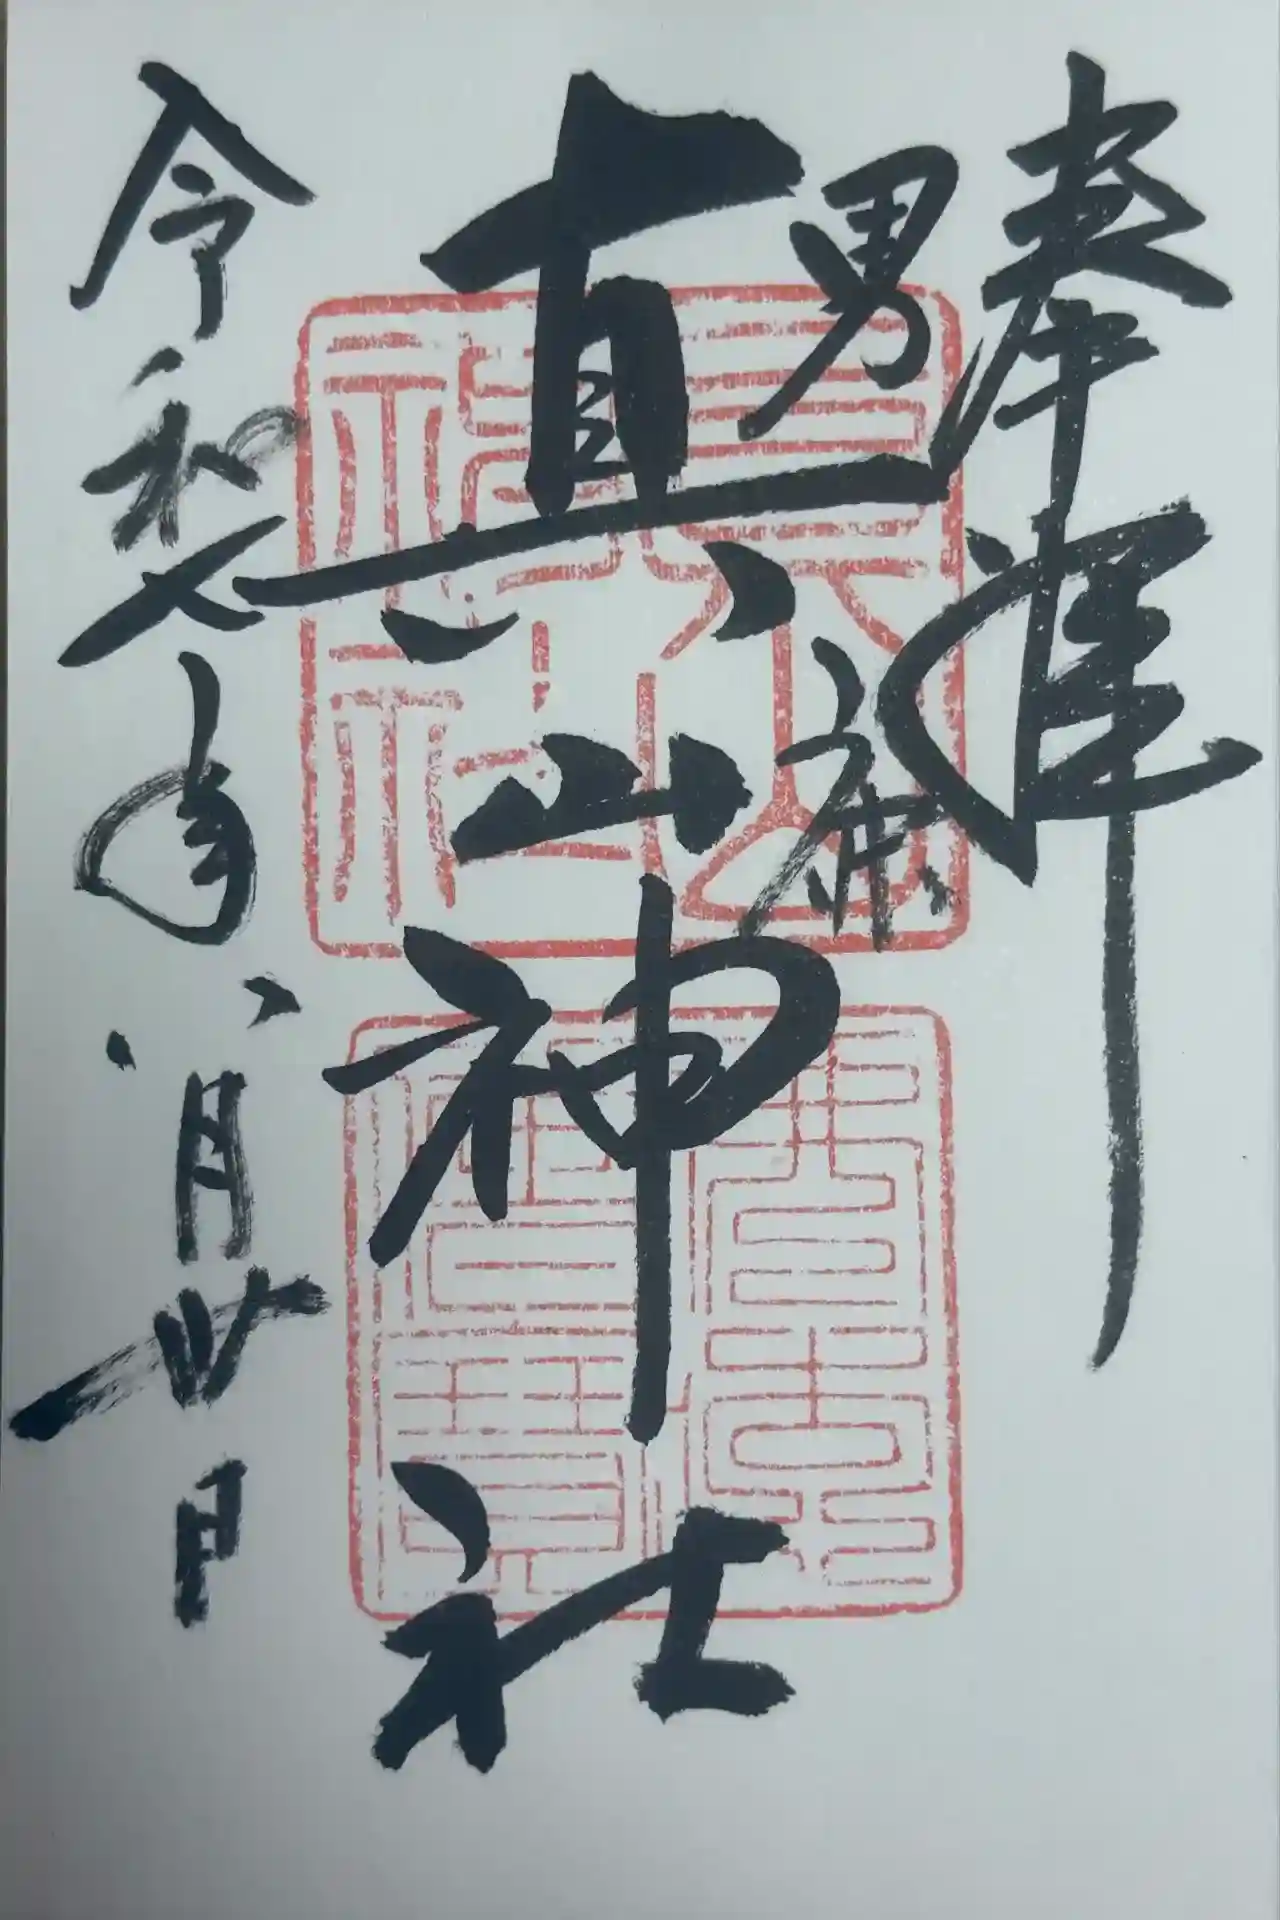 奉拝
男鹿
真山神社
令和七年八月廿日